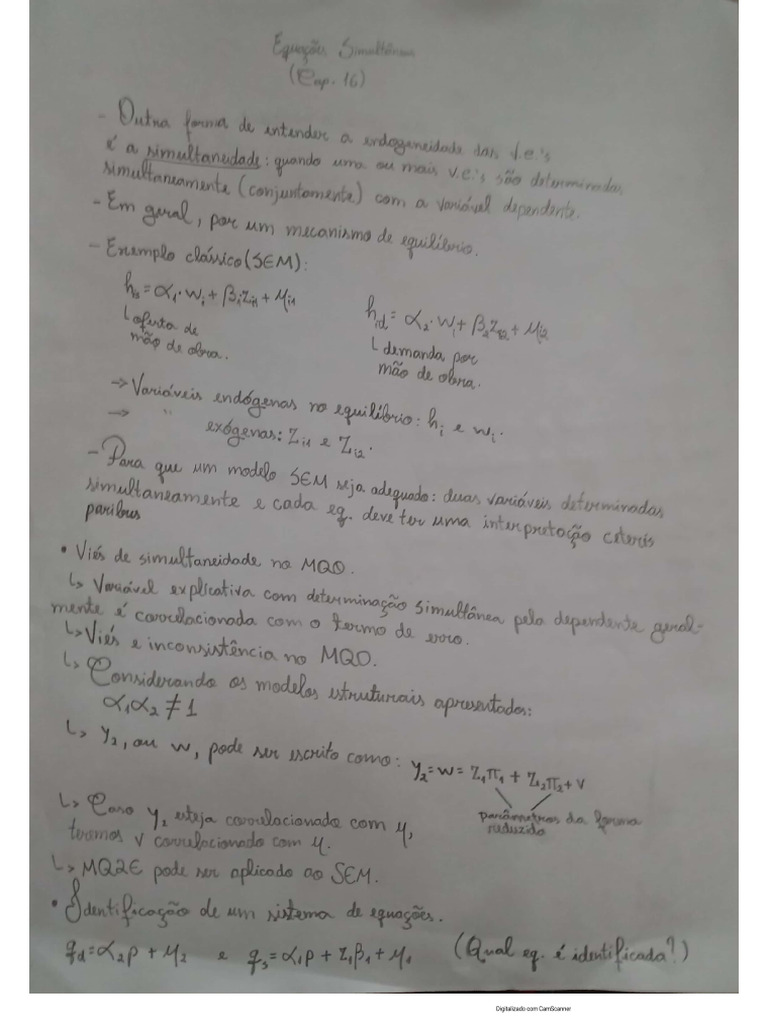 Equações Simultâneas
(Cap. 16)
- Outra forma de entender a endogeneidade das v.e.'s
é a simultaneidade: quando uma ou mais v.e.'s são determinadas
simultaneamente (conjuntamente) com a variável dependente.
- Em geral, por um mecanismo de equilíbrio.
- Exemplo clássico (SEM):
hᵢₛ = α₁·wᵢ + β₁zᵢ₁ + μᵢ₁
hᵢd = α₂·wᵢ + β₂zᵢ₂ + μᵢ₂
└ oferta de
mão de obra.
└ demanda por
mão de obra.
→ Variáveis endógenas no equilíbrio: hᵢ e wᵢ.
→ " exógenas: Zᵢ₁ e Zᵢ₂.
- Para que um modelo SEM seja adequado: duas variáveis determinadas
simultaneamente e cada eq. deve ter uma interpretação ceteris
paribus
• Viés de simultaneidade no MQO.
↳ Variável explicativa com determinação simultânea pela dependente geral-
mente é correlacionada com o termo de erro.
↳ Viés e inconsistência no MQO.
↳ Considerando os modelos estruturais apresentados:
α₁α₂ ≠ 1
↳ y₂, ou w, pode ser escrito como: y₂ = w = Z₁π₁ + Z₂π₂ + v
parâmetros da forma
reduzida
↳ Caso y₂ esteja correlacionado com μ,
termos v correlacionado com μ.
↳ MQ2E pode ser aplicado ao SEM.
• Identificação de um sistema de equações.
qd = α₂p + μ₂ e qₛ = α₁p + z₁β₁ + μ₁ (Qual eq. é identificada?)
Digitalizado com CamScanner